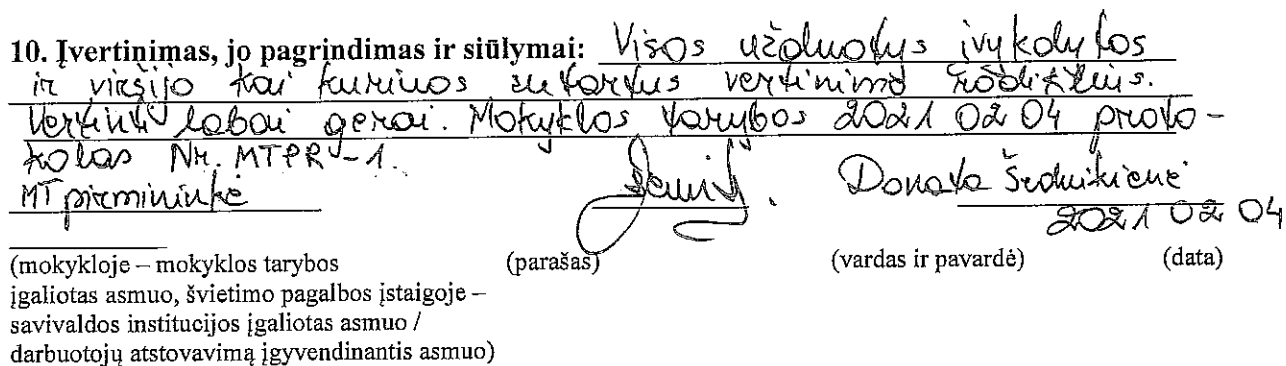 10. Įvertinimas, jo pagrindimas ir siūlymai: Visos užduotys įvykdytos
ir viršijo kai kuriuos sutartus vertinimo rodiklius.
Vertinti labai gerai. Mokyklos tarybos 2021 02 04 proto-
kolas Nr. MTPR-1.
MT pirmininkė Donata
2021 02 04
(mokykloje – mokyklos tarybos (parašas) (vardas ir pavardė) (data)
įgaliotas asmuo, švietimo pagalbos įstaigoje –
savivaldos institucijos įgaliotas asmuo /
darbuotojų atstovavimą įgyvendinantis asmuo)